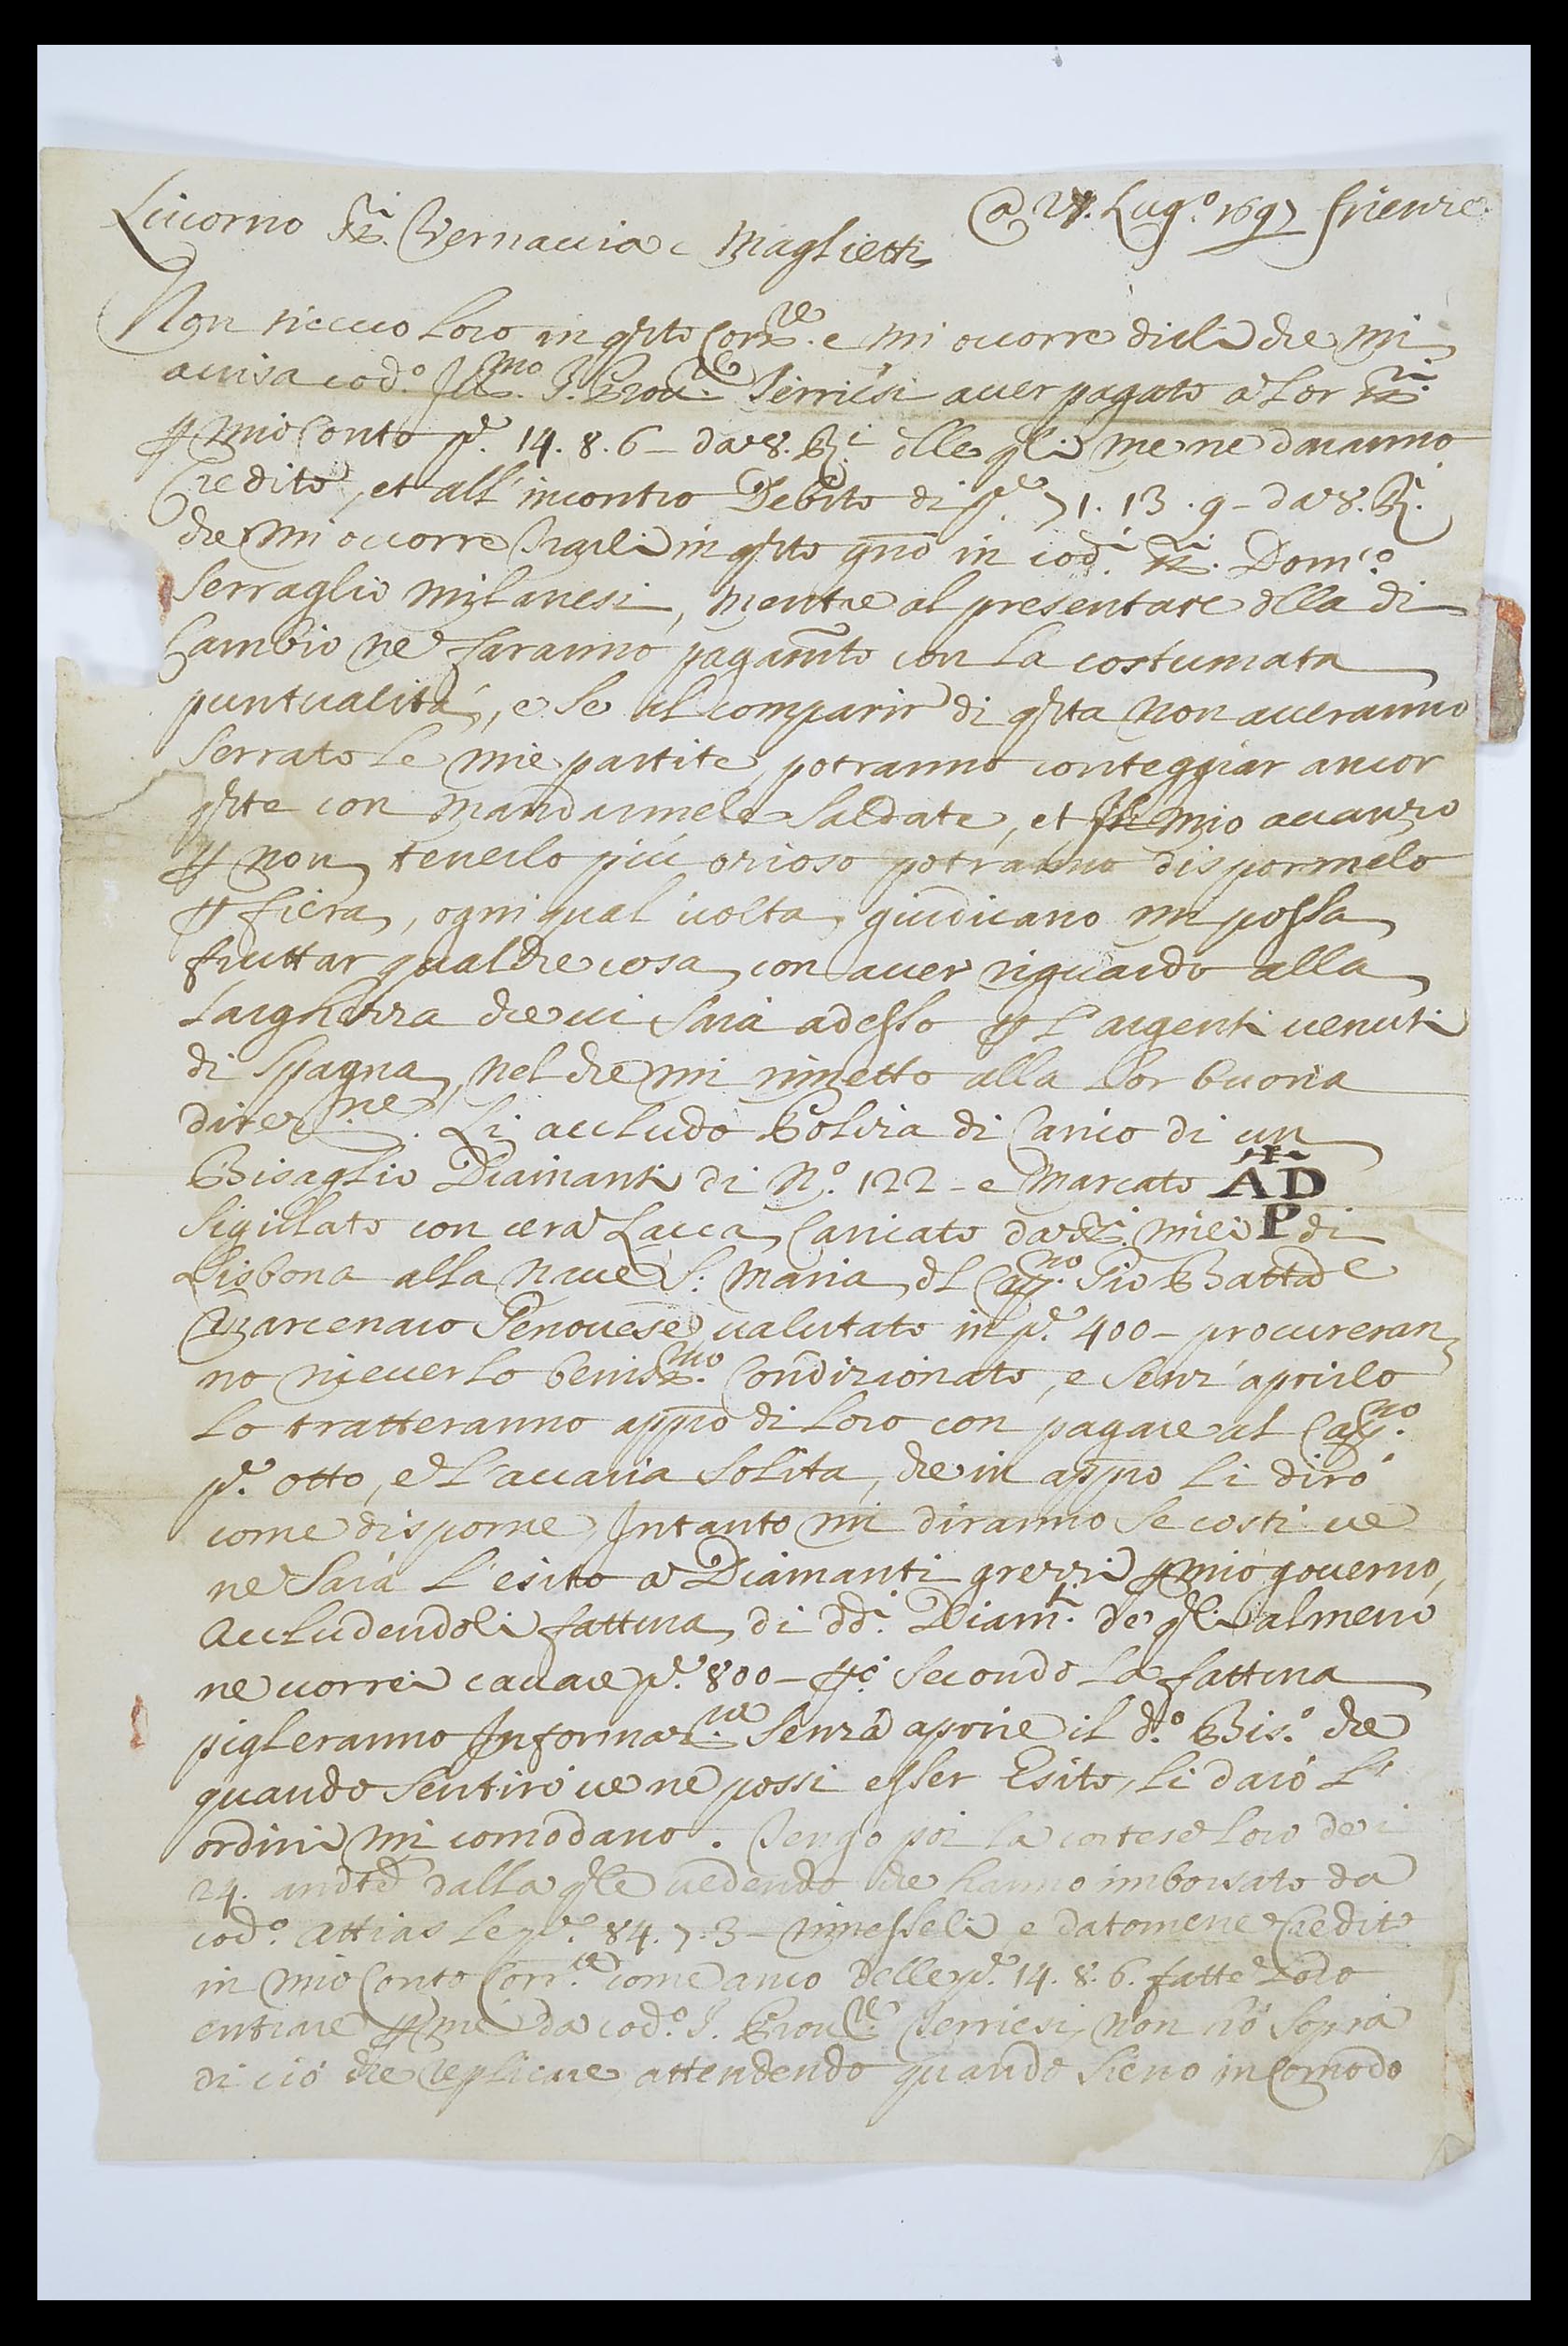 Liuorno SS.ri Vernaccia e Maglietti
@ 27. Lug.o 1697 firenze
Non riceuo Loro in q.sto Corr.re e mi occorre dirli che mi
auisa cod.o Ill.mo S. Prou.re Terriesi auer pagato a Lor SS.ri
p mio Conto p.e 14. 8. 6 – da 8. R.i dlle q.li me ne daranno
Credito, et all'incontro Debito di p.e 71. 13. 9 – da 8. R.i
che mi occorre in q.sto g.no in cod.i SS.ri Dom.co
Serraglio Milanesi, mentre al presentare dlla di
Cambio ne faranno pagam.to con la costumata
puntualità, e se al comparir di q.sta non aueranno
Serrato le mie partite, potranno conteggiar ancor
q.ste con mandarmele Saldate, et mio auanzo
p non tenerlo più ozioso potranno dispormelo
p fiera, ogni qual uolta giudicano mi possa
fruttar qualche cosa, con auer riguardo alla
Larghezza che ui sarà adesso p L'argenti uenuti
di Spagna, nel che mi rimetto alla Lor buona
direz.ne. Li accludo Polizia di Carico di un
Bisaglio Diamanti di N.o 122 – e Marcato AD
P
Sigillato con cera Lacca, Caricato da SS.ri miei di
Lisbona alla Naue S. Maria, dl Cap.no Gio Batta
Genouese, ualutato in p.e 400 – procureran
no riceuerlo benis.mo Condizionato, e senz'aprirlo
Lo tratteranno app.o di Loro con pagare al Cap.no
p.e otto, e L'auaria Solita, che in app.o Li dirò
come disporne, Intanto mi diranno se costì ue
ne sarà L'esito a Diamanti grezzi p mio gouerno,
Accludendoli fattura di dd.i Diam.ti de q.li almeno
ne uorrei cauare p.e 800 – p.c Secondo la fattura
pigleranno Informaz.ne Senza aprire il d.o Bis.o che
quando sentirò ue ne possi esser Esito, li darò L'
ordini mi comodano. Tengo poi la cortese Loro dei
24. and.te dalla q.le uedendo che hanno imborsato da
cod.o Attias le p.e 84. 7. 3 – rimesseli e datomene Credito
in mio Conto Corr.te come anco delle p.e 14. 8. 6. fatte Loro
entrare p me da cod.o S. Prou.re Terriesi, non hò Sopra
di ciò che replicare, attendendo quando Sieno in Comodo